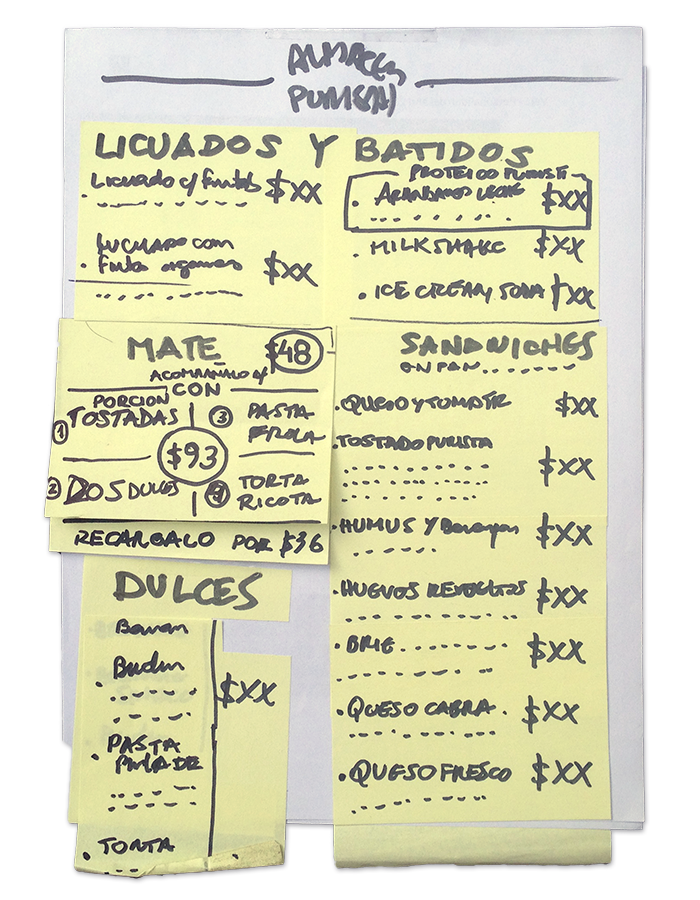 ALMACEN
PURISTA
LICUADOS Y BATIDOS
Licuado c/ frutas $XX
LICUADO con
fruta organica $XX
PROTEICO PURISTA
ARANDANOS LECHE $XX
MILKSHAKE $XX
ICE CREAM SODA $XX
MATE $48
ACOMPAÑALO c/
CON
PORCION
1 TOSTADAS
3 PASTA
FROLA
$93
2 DOS DULCES
4 TORTA
RICOTA
RECARGALO POR $36
DULCES
Budin
$XX
PASTA
TORTA
SANDWICHES
EN PAN
QUESO Y TOMATE $XX
TOSTADO PURISTA
$XX
HUMUS Y $XX
HUEVOS REVUELTOS $XX
BRIE $XX
QUESO CABRA $XX
QUESO FRESCO $XX